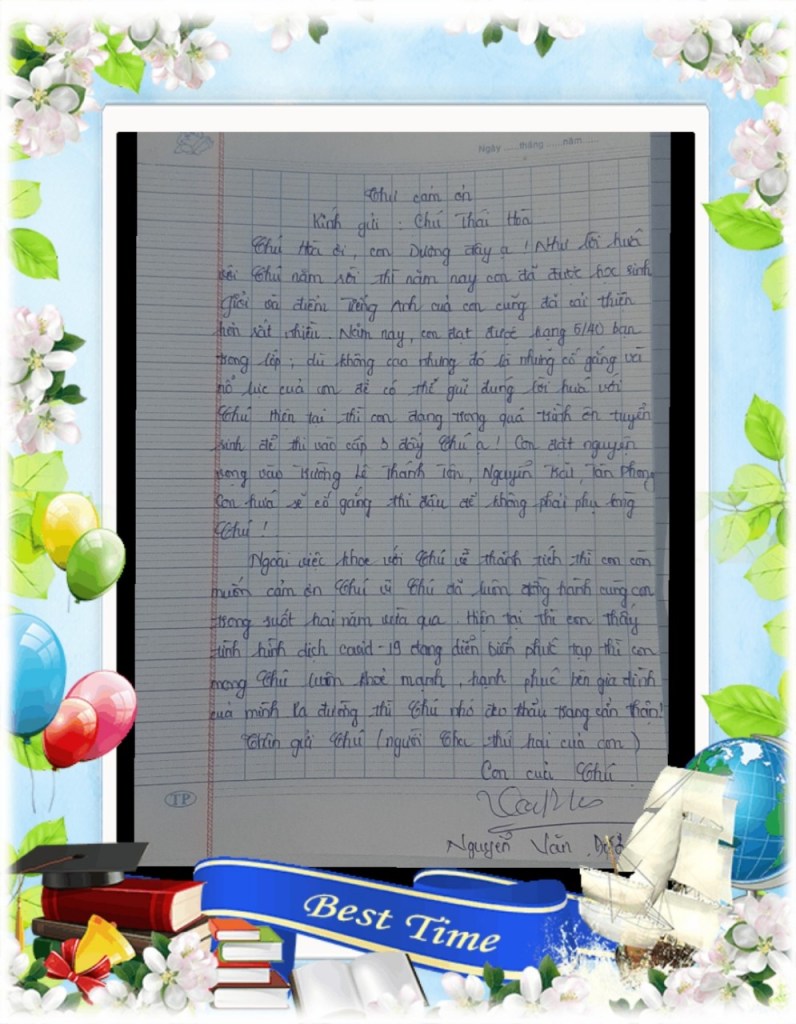 Ngày ...... tháng ...... năm ......
Thư cảm ơn
Kính gửi : Chú Thái Hoà
Chú Hoà ơi, con Dương đây ạ ! Như lời hứa
với Chú năm rồi thì năm nay con đã được học sinh
Giỏi và điểm Tiếng Anh của con cũng đã cải thiện
hơn rất nhiều. Năm nay, con đạt được hạng 5/40 bạn
trong lớp ; dù không cao nhưng đó là những cố gắng và
nổ lực của con để có thể giữ đúng lời hứa với
Chú Hiện tại thì con đang trong quá trình ôn tuyển
sinh để thi vào cấp 3 đấy Chú ạ ! Con đặt nguyện
vọng vào trường Lê Thánh Tôn, Nguyễn Trãi, Tân Phong
Con hứa sẽ cố gắng thi đậu để không phải phụ lòng
Chú !
Ngoài việc khoe với Chú về thành tích thì con còn
muốn cảm ơn Chú vì Chú đã luôn đồng hành cùng con
trong suốt hai năm vừa qua. Hiện tại thì con thấy
tình hình dịch covid-19 đang diễn biến phức tạp thì con
mong Chú luôn khoẻ mạnh, hạnh phúc bên gia đình
của mình Ra đường thì Chú nhớ đeo khẩu trang cẩn thận!
Chào Chú (người Cha thứ hai của con )
Con của Chú
Nguyễn Văn
TP
Best Time